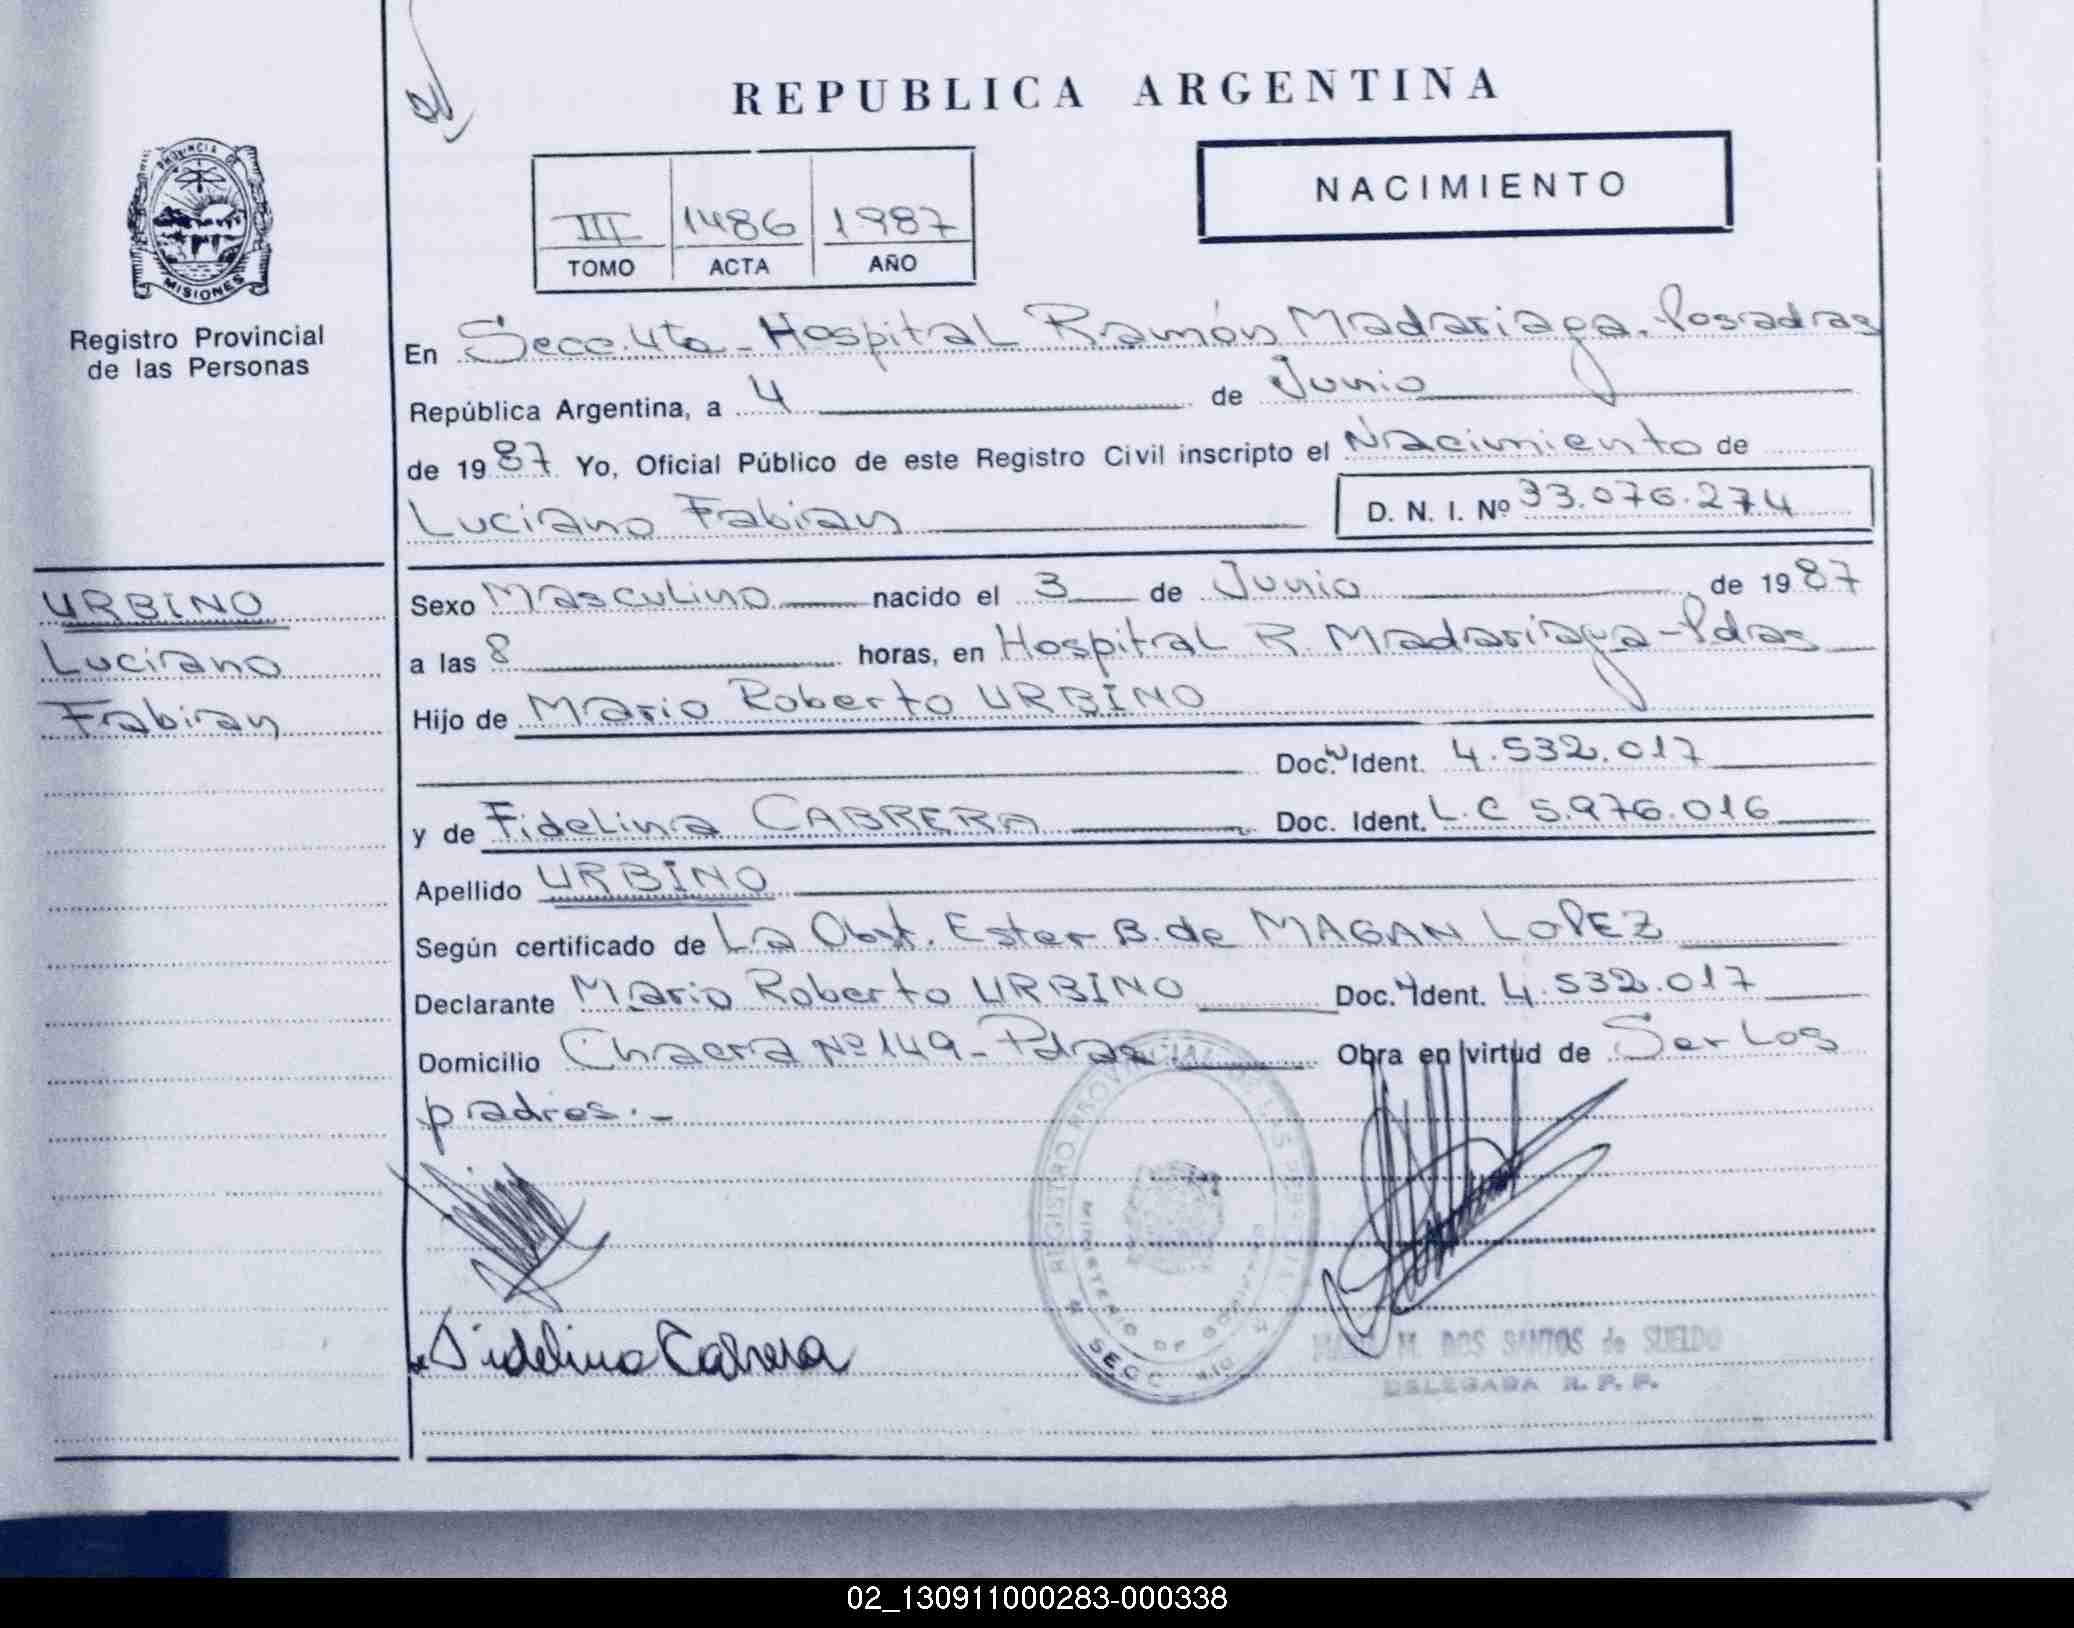 REPUBLICA ARGENTINA
PROVINCIA DE
MISIONES
Registro Provincial
de las Personas
III 1486 1987
TOMO ACTA AÑO
NACIMIENTO
En Secc. 4ta - Hospital Ramón Madariaga. Posadas
República Argentina, a 4 de Junio
de 1987 Yo, Oficial Público de este Registro Civil inscripto el Nacimiento de
Luciano Fabian D. N. I. Nº 33.076.274
URBINO
Luciano
Fabian
Sexo Masculino nacido el 3 de Junio de 1987
a las 8 horas, en Hospital R. Madariaga - Pdas
Hijo de Mario Roberto URBINO
Doc. Ident. 4.532.017
y de Fidelina CABRERA Doc. Ident. L.C 5.976.016
Apellido URBINO
Según certificado de La Obst. Ester B. de MAGAN LOPEZ
Declarante Mario Roberto URBINO Doc. Ident. 4.532.017
Domicilio Chacra Nº 149 - Pdas Obra en virtud de Ser Los
padres.-
REGISTRO PROVINCIAL DE LAS
MINISTERIO DE GOBIERNO
SECC.
Fidelina Cabrera
M. DOS SANTOS de SUELDO
DELEGADA R. P. P.
02_130911000283-000338